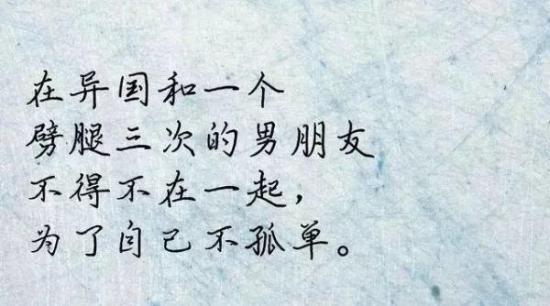 在异国和一个
劈腿三次的男朋友
不得不在一起，
为了自己不孤单。